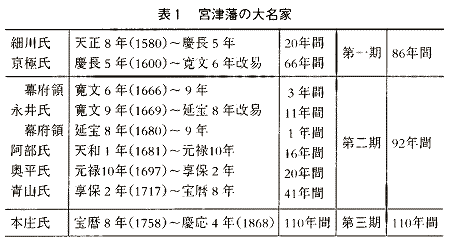 表1 宮津藩の大名家
細川氏 天正8年(1580)～慶長5年 20年間 第一期 86年間
京極氏 慶長5年(1600)～寛文6年改易 66年間
幕府領 寛文6年(1666)～9年 3年間
永井氏 寛文9年(1669)～延宝8年改易 11年間
幕府領 延宝8年(1680)～9年 1年間
阿部氏 天和1年(1681)～元禄10年 16年間 第二期 92年間
奥平氏 元禄10年(1697)～享保2年 20年間
青山氏 享保2年(1717)～宝暦8年 41年間
本庄氏 宝暦8年(1758)～慶応4年(1868) 110年間 第三期 110年間